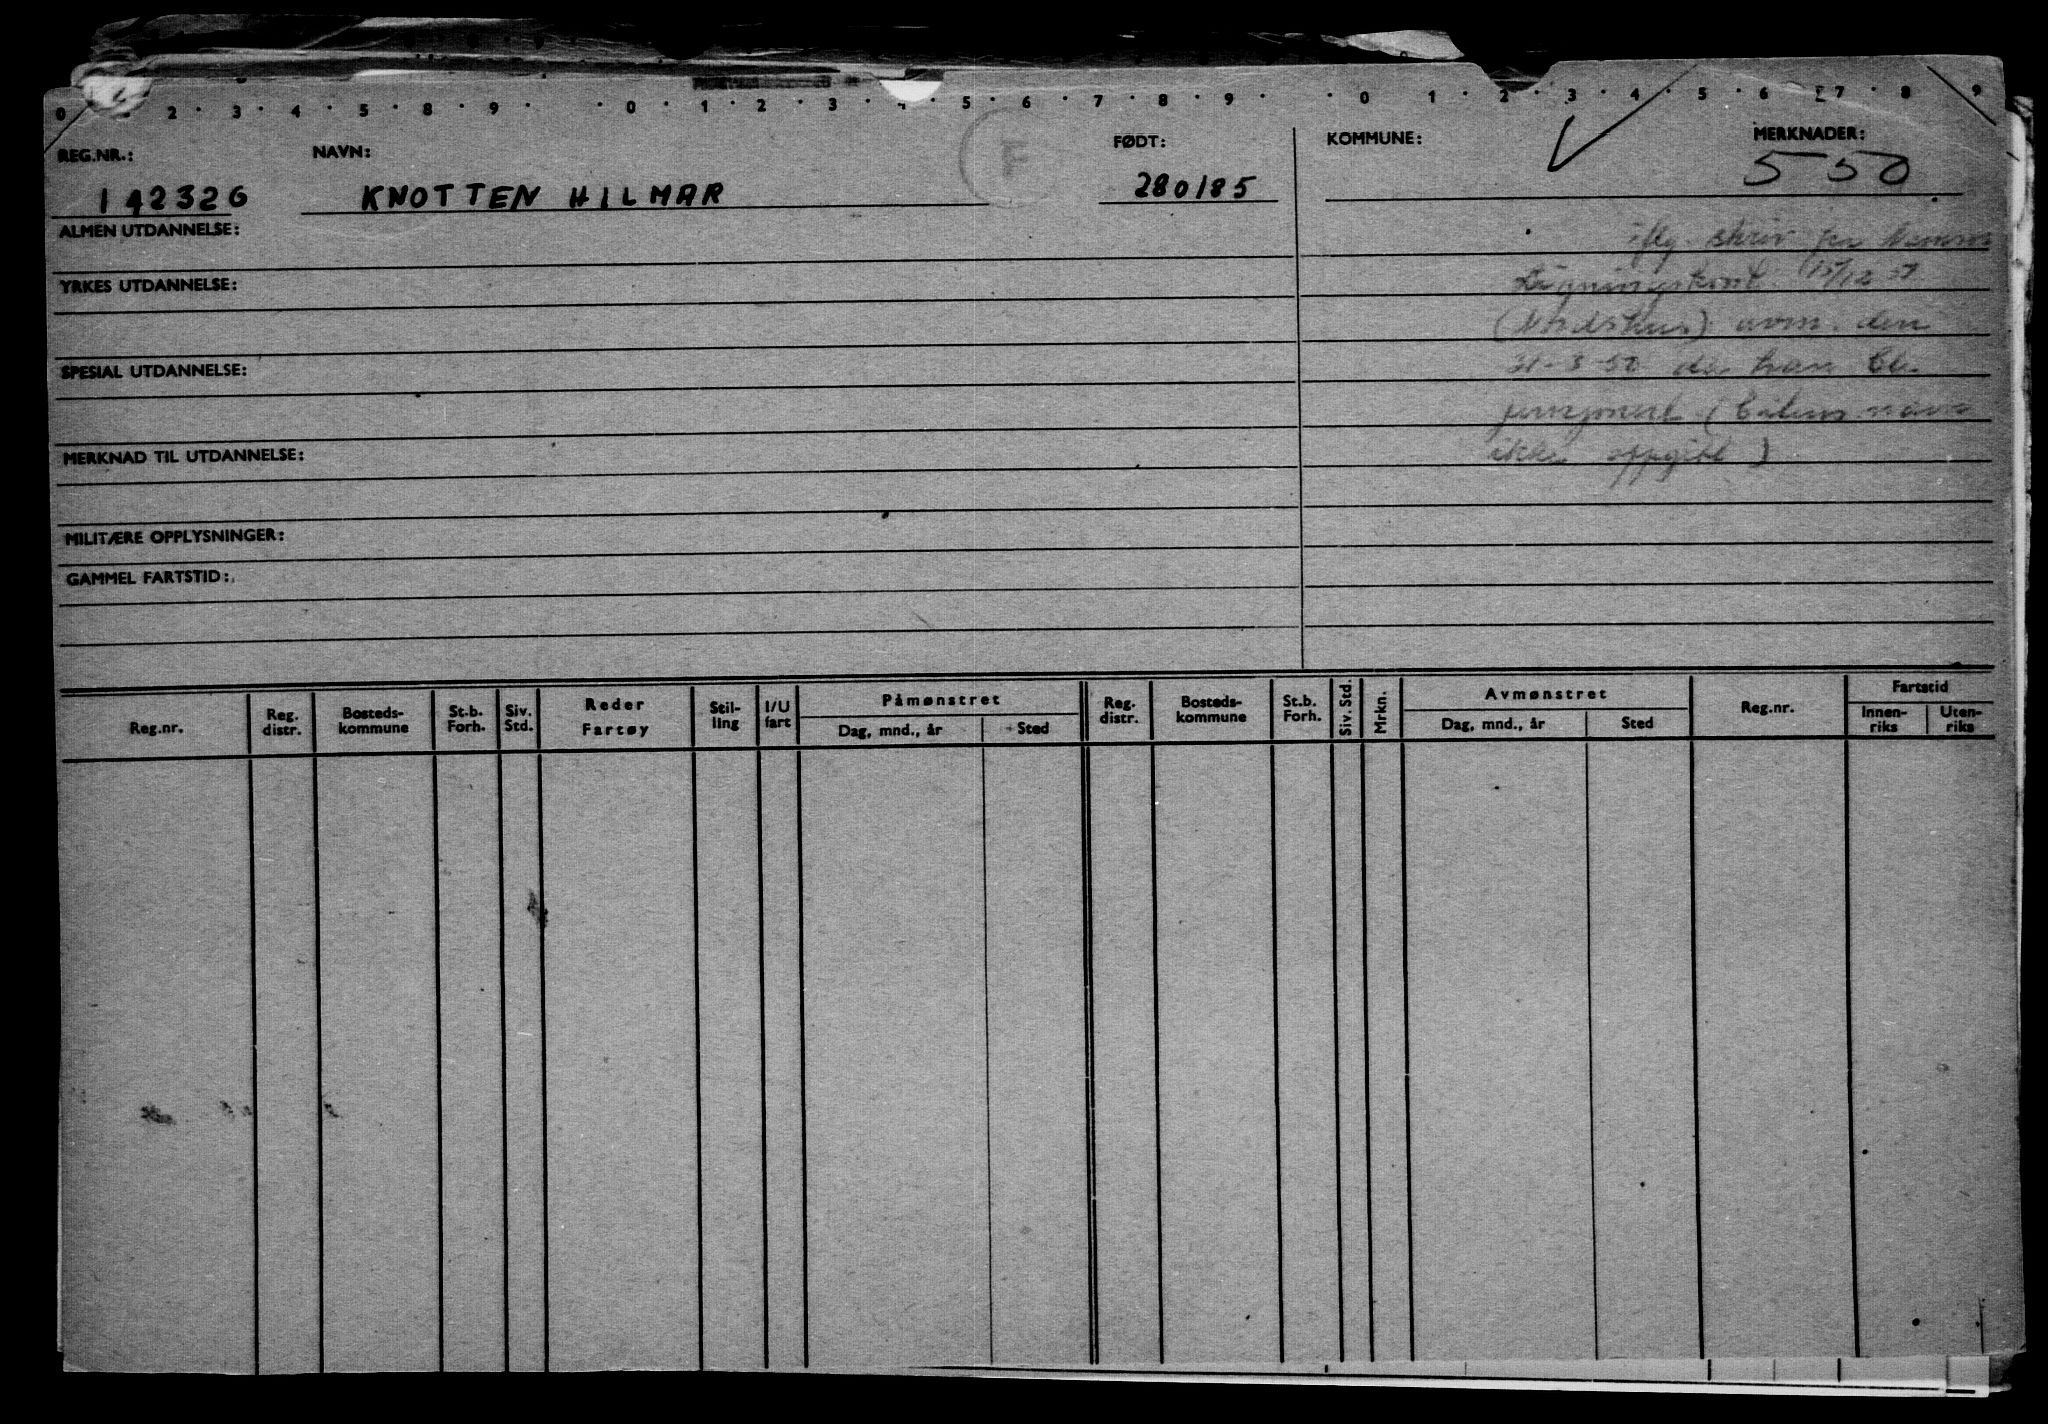 0 2 3 4 5 8 9 0 1 2 3 4 5 6 7 8 9 0 1 2 3 4 5 6 7 8 9
REG.NR.: NAVN: F FØDT: KOMMUNE: MERKNADER:
142326 KNOTTEN HILMAR 280185 550
ALMEN UTDANNELSE:
iflg. skriv fra
YRKES UTDANNELSE:
Ligningskont. 15/12 51
avm. den
SPESIAL UTDANNELSE:
31-3-50 da han ble
pensjonert (båtens navn
MERKNAD TIL UTDANNELSE:
ikke oppgitt)
MILITÆRE OPPLYSNINGER:
GAMMEL FARTSTID:
Reg.nr. Reg. distr. Bosteds-kommune St.b. Forh. Siv. Std. Reder Fartøy Stil-ling I/U fart Påmønstret Dag, mnd., år Sted Reg. distr. Bosteds-kommune St.b. Forh. Siv. Std. Mrkn. Avmønstret Dag, mnd., år Sted Reg.nr. Fartstid Innen-riks Uten-riks